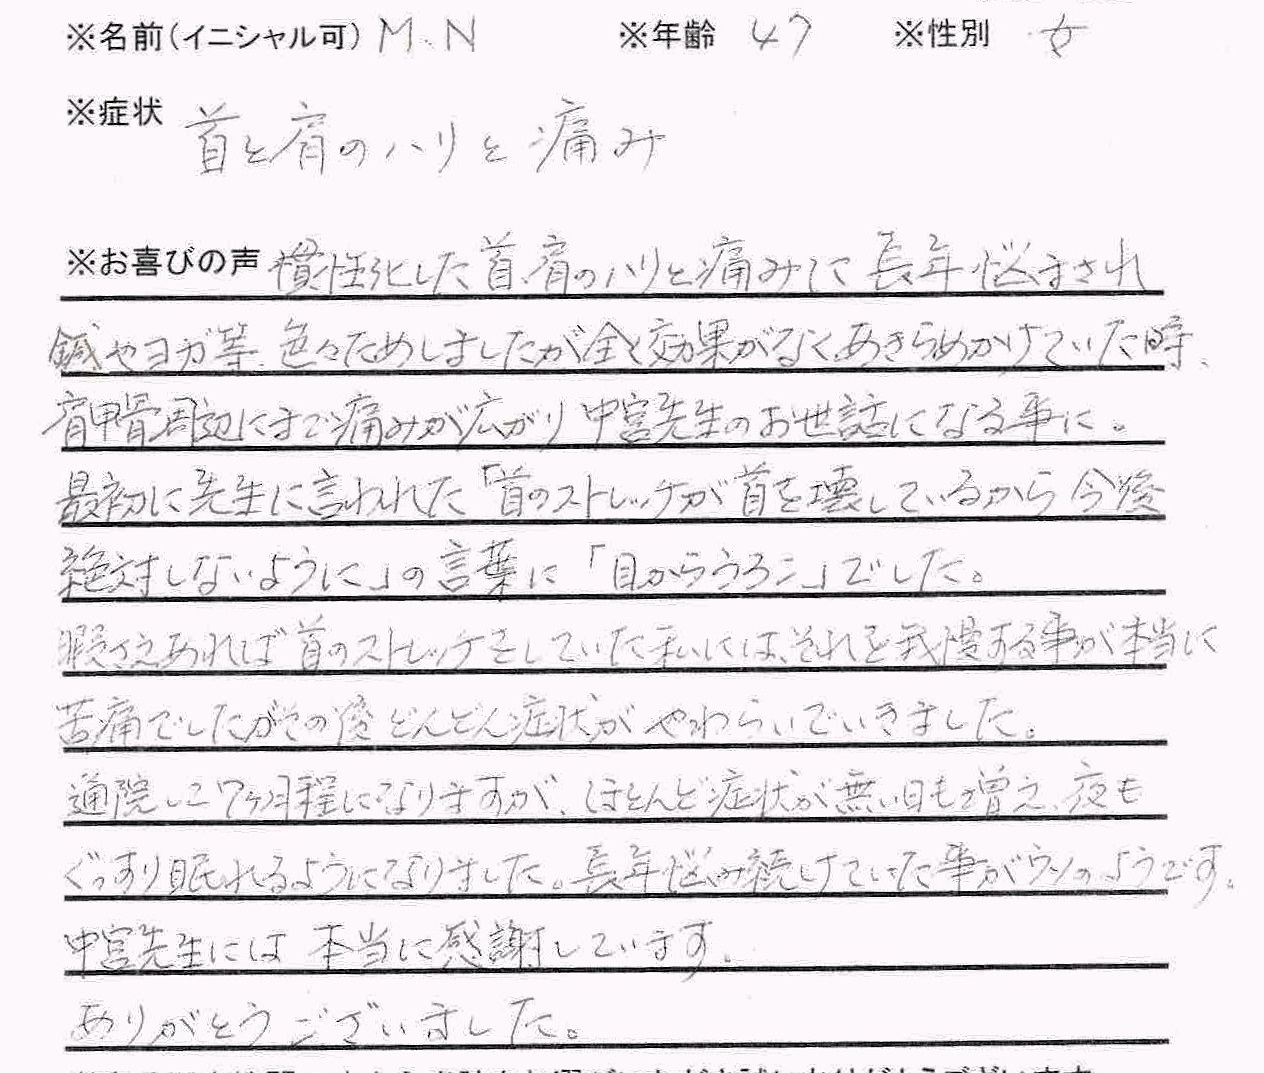 ※名前(イニシャル可) M.N ※年齢 47 ※性別 女
※症状 首と肩のハリと痛み
※お喜びの声 慣性化した首、肩のハリと痛みに長年悩まされ
鍼やヨガ等、色々ためしましたが全く効果がなくあきらめかけていた時、
肩甲骨周辺にまで痛みが広がり中宮先生のお世話になる事に。
最初に先生に言われた「首のストレッチが首を壊しているから今後
絶対しないように」の言葉に「目からうろこ」でした。
暇さえあれば首のストレッチをしていた私には、それを我慢する事が本当に
苦痛でしたがその後どんどん症状がやわらいでいきました。
通院して7ヶ月程になりますが、ほとんど症状が無い日も増え、夜も
ぐっすり眠れるようになりました。長年悩み続けていた事がウソのようです。
中宮先生には本当に感謝しています。
ありがとうございました。